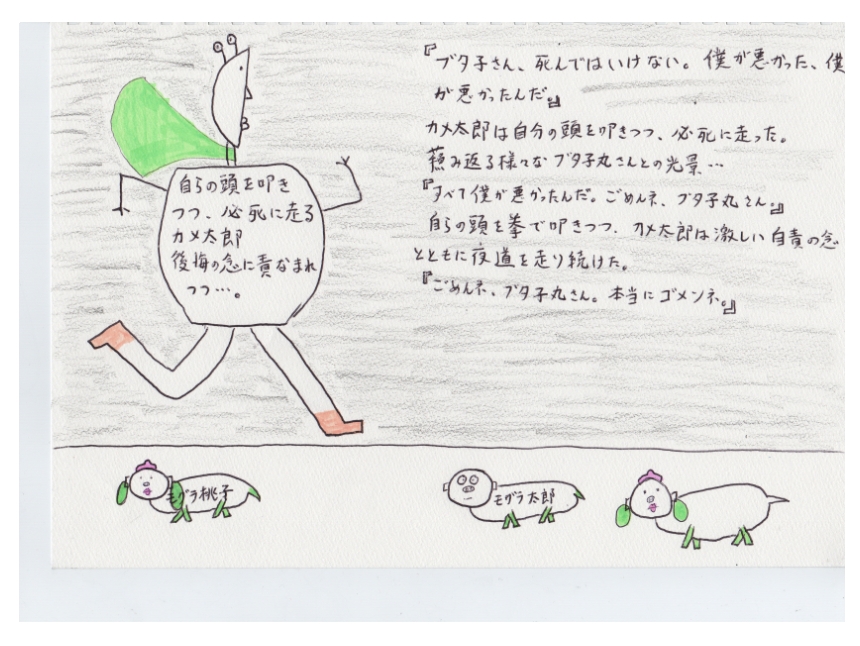 『ブタ子さん、死んではいけない。僕が悪かった、僕
が悪かったんだ。』
カメ太郎は自分の頭を叩きつつ、必死に走った。
蘇み返る様々なブタ子丸さんとの光景…
『すべて僕が悪かったんだ。ごめんネ、ブタ子丸さん。』
自らの頭を拳で叩きつつ、カメ太郎は激しい自責の念
とともに夜道を走り続けた。
『ごめんネ、ブタ子丸さん。本当にゴメンネ。』
自らの頭を叩き
つつ、必死に走る
カメ太郎
後悔の念に責なまれ
つつ…。
モグラ桃子
モグラ太郎